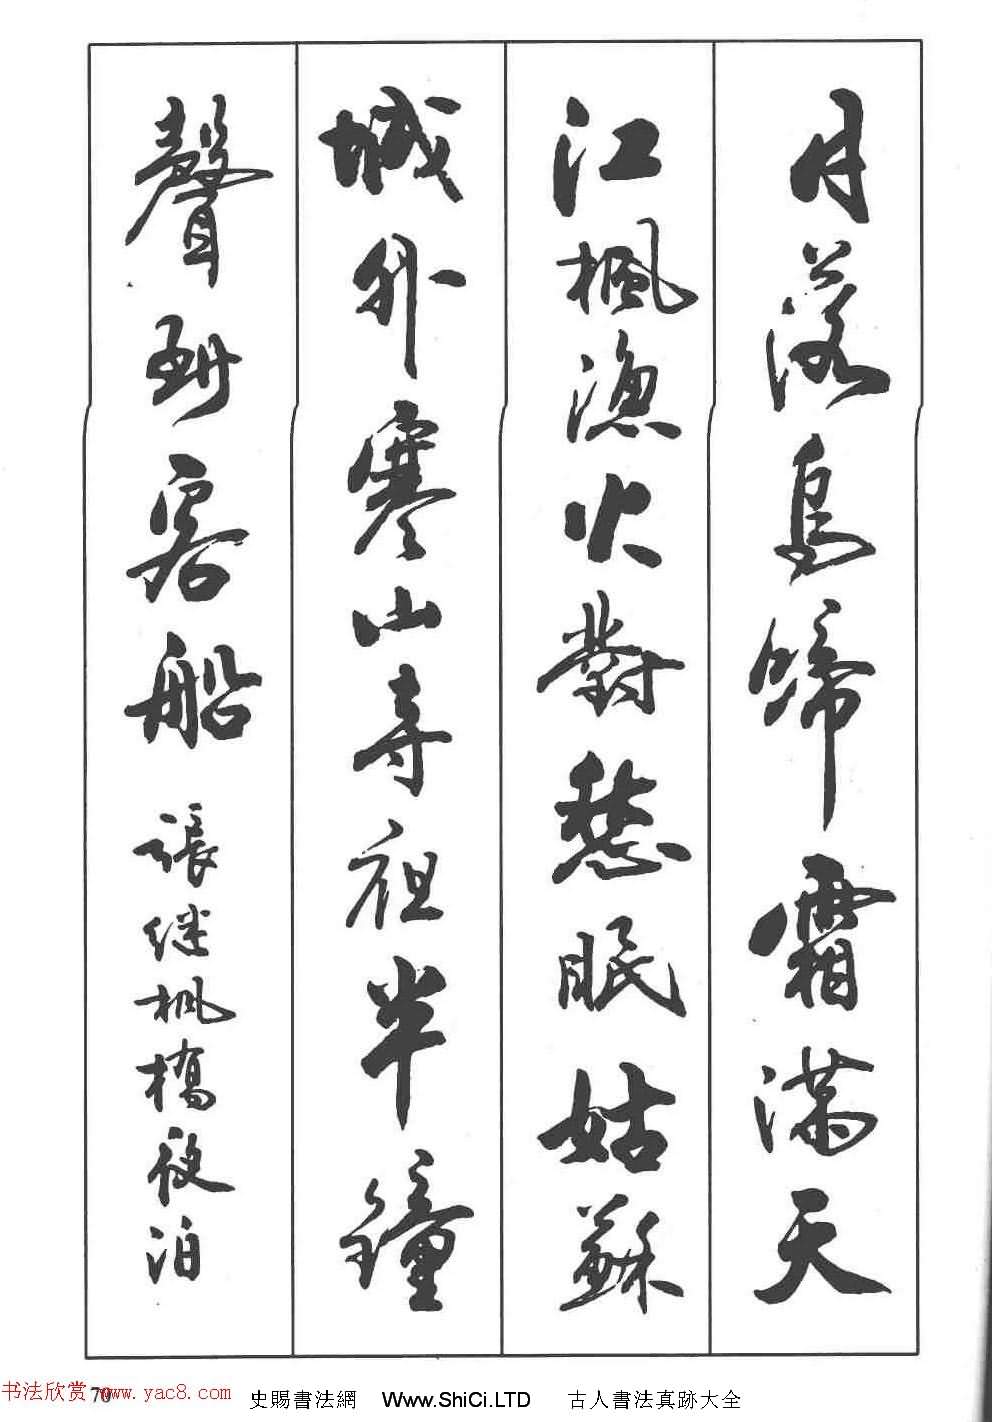 月落烏啼霜滿天
江楓漁火對愁眠姑蘇
城外寒山寺祖半鐘
聲到客船 張继楓橋夜泊
70
书法欣赏 www.yac8.com
史賜書法網 Www.ShiCi.LTD 古人書法真跡大全